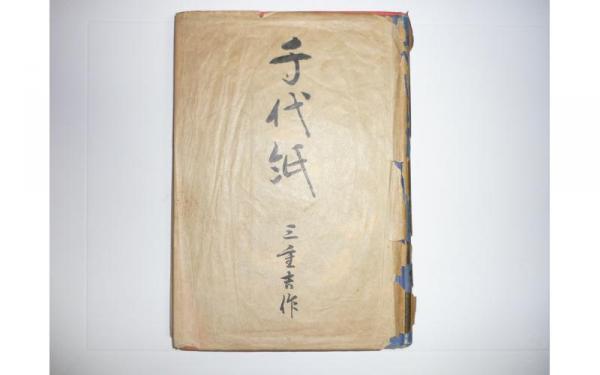 千代紙
三重吉作